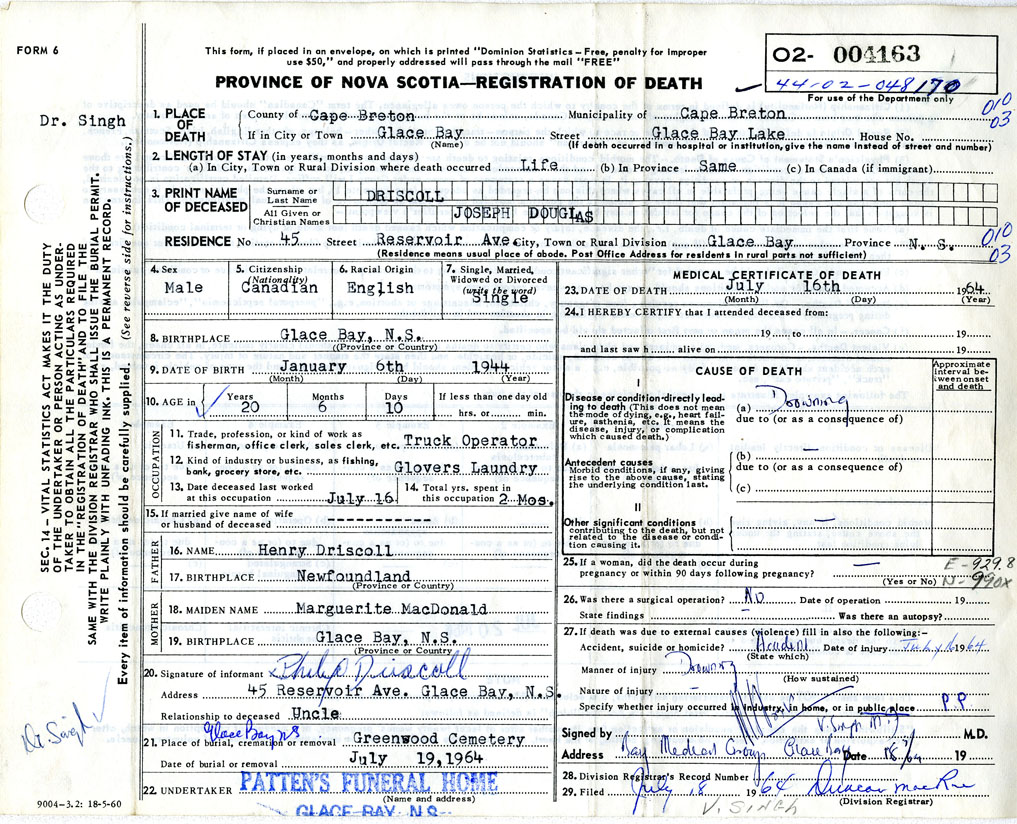 FORM 6
This form, if placed in an envelope, on which is printed "Dominion Statistics – Free, penalty for improper
use $50," and properly addressed will pass through the mail "FREE"
PROVINCE OF NOVA SCOTIA—REGISTRATION OF DEATH
02- 004163
44-02-048170
For use of the Department only
Dr. Singh
SEC. 14 – VITAL STATISTICS ACT MAKES IT THE DUTY
OF THE UNDERTAKER OR PERSON ACTING AS UNDER-
TAKER TO OBTAIN ALL THE PARTICULARS REQUIRED
IN THE "REGISTRATION OF DEATH" AND TO FILE THE
SAME WITH THE DIVISION REGISTRAR WHO SHALL ISSUE THE BURIAL PERMIT.
WRITE PLAINLY WITH UNFADING INK. THIS IS A PERMANENT RECORD.
Every item of information should be carefully supplied. (See reverse side for instructions.)
1. PLACE OF DEATH County of Cape Breton Municipality of Cape Breton 010
If in City or Town Glace Bay Street Glace Bay Lake House No. 03
(Name) (If death occurred in a hospital or institution, give the name instead of street and number)
2. LENGTH OF STAY (in years, months and days)
(a) In City, Town or Rural Division where death occurred Life (b) In Province Same (c) In Canada (if immigrant)
3. PRINT NAME OF DECEASED Surname or Last Name DRISCOLL
All Given or Christian Names JOSEPH DOUGLAS
RESIDENCE No 45 Street Reservoir Ave. City, Town or Rural Division Glace Bay Province N. S. 010
(Residence means usual place of abode. Post Office Address for residents in rural parts not sufficient) 03
4. Sex Male
5. Citizenship (Nationality) Canadian
6. Racial Origin English
7. Single, Married, Widowed or Divorced (write the word) Single
8. BIRTHPLACE Glace Bay, N.S.
((Province or Country)
9. DATE OF BIRTH January 6th 1944
(Month) (Day) (Year)
10. AGE in Years 20 Months 6 Days 10 If less than one day old
hrs. or min.
OCCUPATION
11. Trade, profession, or kind of work as
fisherman, office clerk, sales clerk, etc. Truck Operator
12. Kind of industry or business, as fishing,
bank, grocery store, etc. Glovers Laundry
13. Date deceased last worked
at this occupation July 16
14. Total yrs. spent in
this occupation 2 Mos.
15. If married give name of wife
or husband of deceased ------------
FATHER
16. NAME Henry Driscoll
17. BIRTHPLACE Newfoundland
(Province or Country)
MOTHER
18. MAIDEN NAME Marguerite MacDonald
19. BIRTHPLACE Glace Bay, N.S.
(Province or Country)
20. Signature of informant Philip Driscoll
Address 45 Reservoir Ave. Glace Bay, N.S.
Relationship to deceased Uncle
Glace Bay NS
21. Place of burial, cremation or removal Greenwood Cemetery
Date of burial or removal July 19, 1964
22. UNDERTAKER PATTEN'S FUNERAL HOME
(Name and address)
GLACE BAY, N.S.
Dr. Singh
9004–3.2: 18-5-60
MEDICAL CERTIFICATE OF DEATH
23. DATE OF DEATH July 16th 1964
(Month) (Day) (Year)
24. I HEREBY CERTIFY that I attended deceased from:
19 to 19
and last saw h alive on 19
CAUSE OF DEATH
Approximate interval between onset and death
I
Disease or condition directly leading to death (This does not mean the mode of dying, e.g., heart failure, asthenia, etc. It means the disease, injury, or complication which caused death.)
(a) Drowning
due to (or as a consequence of)
Antecedent causes
Morbid conditions, if any, giving rise to the above cause, stating the underlying condition last.
(b) —
due to (or as a consequence of)
(c)
II
Other significant conditions
contributing to the death, but not related to the disease or condition causing it. —
25. If a woman, did the death occur during
pregnancy or within 90 days following pregnancy? —
(Yes or No)
E-929.8
N-990X
26. Was there a surgical operation? No Date of operation 19
State findings – Was there an autopsy?
27. If death was due to external causes (violence) fill in also the following:–
Accident, suicide or homicide? Accident Date of injury July 16 1964
(State which)
Manner of injury Drowning
(How sustained)
Nature of injury –
Specify whether injury occurred in industry, in home, or in public place P.P
Signed by V. Singh M.D.
Address Bay Medical Group Glace Bay Date 18/7/64 19
28. Division Registrar's Record Number
29. Filed July 18 1964 Duncan MacRae
(Division Registrar)
V. SINGH